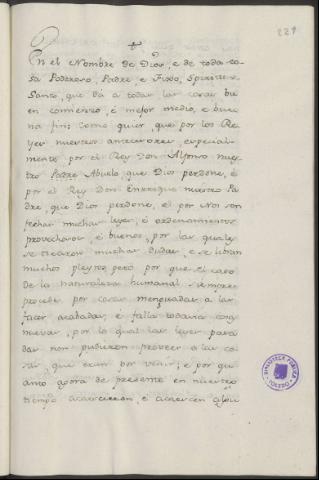 221
En el Nombre de Dios, e de toda co-
sa Poderoso, Padre, e Fixo, Spiritu
Santo, que dá a todas las cosas bu
en comienzo, é mejor medio, e bue
na fin; Como quier, que por los Re-
yes nuestros antecesores, especial-
mente por el Rey Don Alfonso nues
tro Padre Abuelo, que Dios perdone, é
por el Rey Don Enrrique nuestro Pa
dre que Dios perdone, é por Nos son
fechas muchas leyes, é ordenamientos
provechosos, é buenos, por las quales
se tiraron muchas dudas, e se libran
muchos pleytos; pero por que el caso
de la naturaleza humanal siempre
procede por cosas menguadas a las
facer acabadas, é falla todavia cosas
nuevas, por lo qual las leyes pasa
das non pudieron proveer a las co
sas, que eran por venir; e por qu
anto agora de presente en nuestro
tiempo acaescieron, é acaescen algu
BIBLIOTECA PUBLICA
TOLEDO